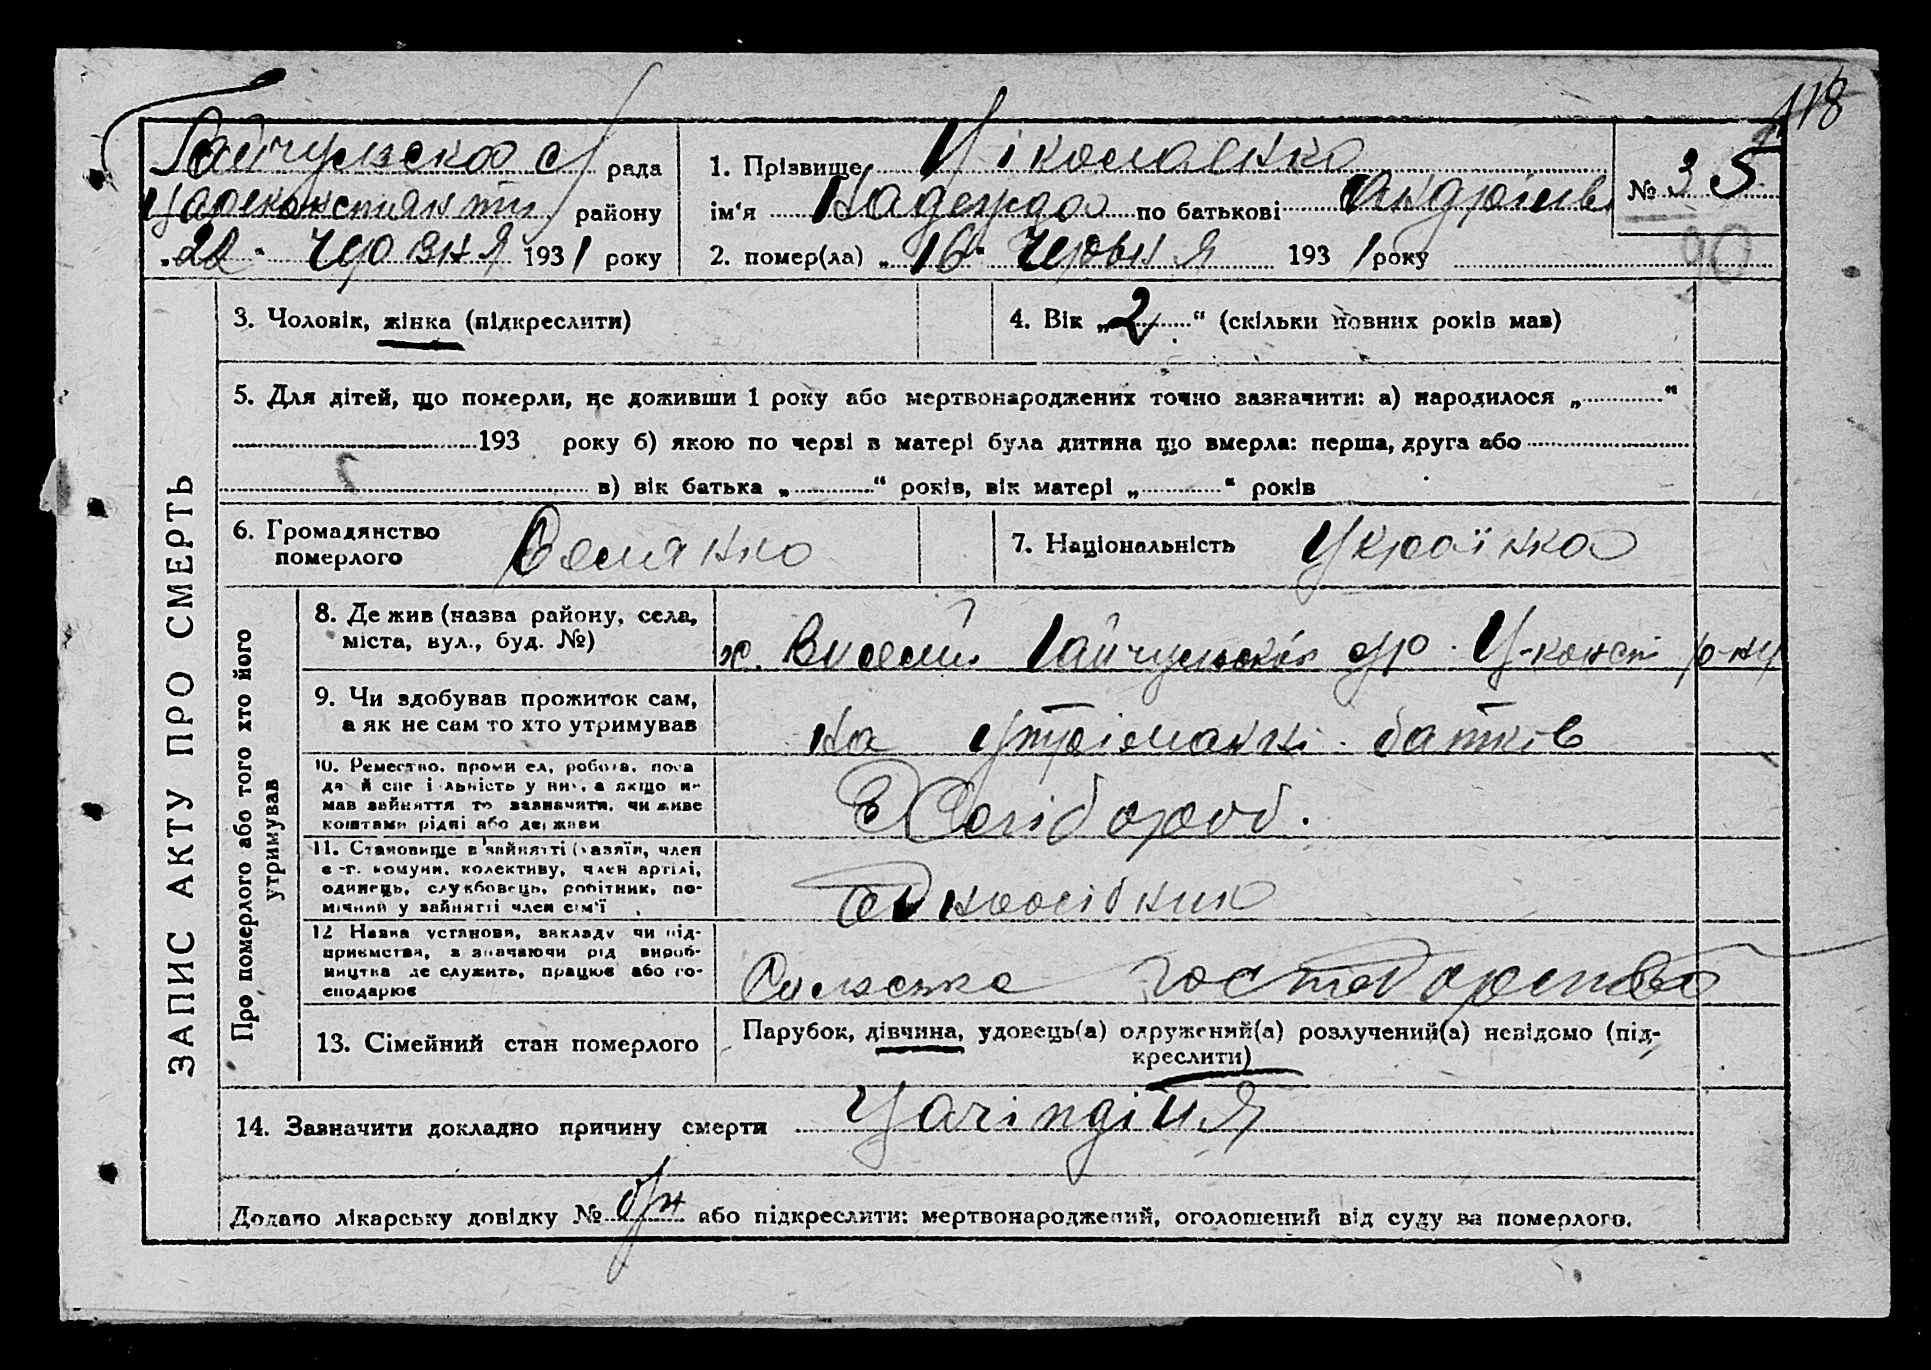 118
Гайчульска с/ рада
Царекостянтин району
"22" червня 1931 року
1. Прізвище
ім'я Надежда по батькові Андріив
№ 35
2. помер(ла) "16" червня 1931 року
90
ЗАПИС АКТУ ПРО СМЕРТЬ
3. Чоловік, жінка (підкреслити)
4. Вік „2“ (скільки повних років мав)
5. Для дітей, що померли, не доживши 1 року або мертвонароджених точно зазначити: а) народилося „ “
193 року б) якою по черзі в матері була дитина що вмерла: перша, друга або
в) вік батька „ “ років, вік матері „ “ років
6. Громадянство
померлого
7. Національність Українка
Про померлого або того хто його
утримував
8. Де жив (назва району, села,
міста, вул., буд. №)
х. Гайчульской с/р. Ц-конст р-ну
9. Чи здобував прожиток сам,
а як не сам то хто утримував
на утріманні батків
10. Ремество, промисел, робота, поса
да й спеціальність у ній, а якщо не
мав зайняття то зазначити, чи живе
коштами рідні або держави
Хлібороб.
11. Становище в зайнятті (хазяїн, член
с.-г. комуни, колективу, член артілі,
одинець, службовець, робітник, по-
мічний у зайнятті член сім'ї
Одноосібник
12 Назва установи, закладу чи під-
приємства, зазначаючи рід вироб-
ництва де служить, працює або го-
сподарює
Сильське господарство
13. Сімейний стан померлого
Парубок, дівчина, удовець(а) одружений(а) розлучений(а) невідомо (під-
креслити)
14. Зазначити докладно причину смерти
Додано лікарську довідку № або підкреслити: мертвонароджений, оголошений від суду за померлого.